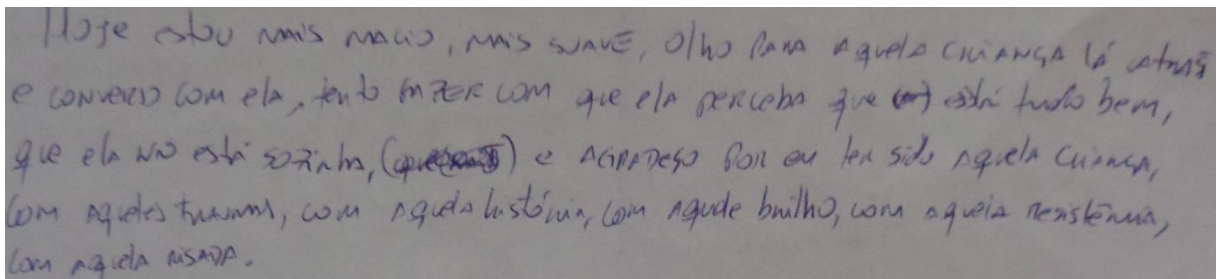 Hoje estou mais macio, mais suave, olho para aquela criança lá atrás
e converso com ela, tento fazer com que ela perceba que está tudo bem,
que ela não está sozinha, e agradeço por eu ter sido aquela criança,
com aqueles traumas, com aquela história, com aquele brilho, com aquela resistência,
com aquela risada.